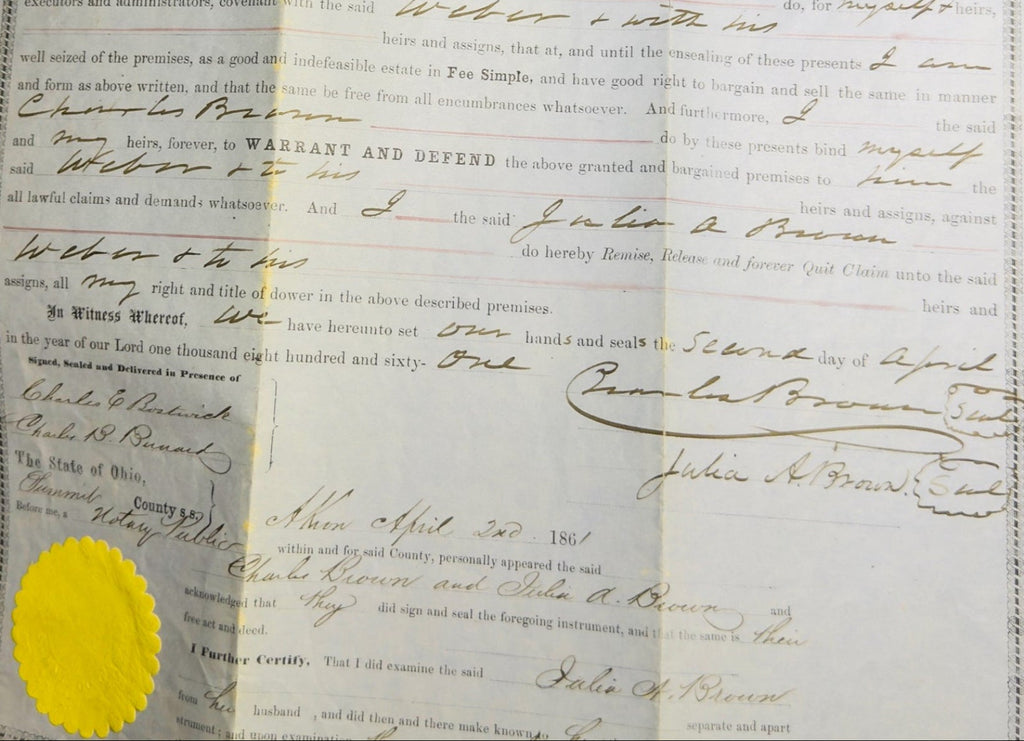 executors and administrators, covenant with the said Weber & with his do, for myself & heirs,
heirs and assigns, that at, and until the ensealing of these presents I am
well seized of the premises, as a good and indefeasible estate in Fee Simple, and have good right to bargain and sell the same in manner
and form as above written, and that the same be free from all encumbrances whatsoever. And furthermore, I the said
Charles Brown do by these presents bind myself
and my heirs, forever, to WARRANT AND DEFEND the above granted and bargained premises to him the
said Weber & to his heirs and assigns, against
all lawful claims and demands whatsoever. And I the said Julia A Brown
do hereby Remise, Release and forever Quit Claim unto the said
Weber & to his heirs and
assigns, all my right and title of dower in the above described premises.
In Witness Whereof, We have hereunto set our hands and seals the Second day of April
in the year of our Lord one thousand eight hundred and sixty- One
Signed, Sealed and Delivered in Presence of
Charles Brown Seal
Charles E Bostwick
Charles B Bernard
Julia A. Brown. Seal
The State of Ohio,
Summit County s.s.
Akron April 2nd 1861
Before me, a Notary Public within and for said County, personally appeared the said
Charles Brown and Julia A. Brown and
acknowledged that they did sign and seal the foregoing instrument, and that the same is their
free act and deed.
I Further Certify, That I did examine the said Julia A. Brown
separate and apart
from her husband, and did then and there make known to
strument; and upon examination